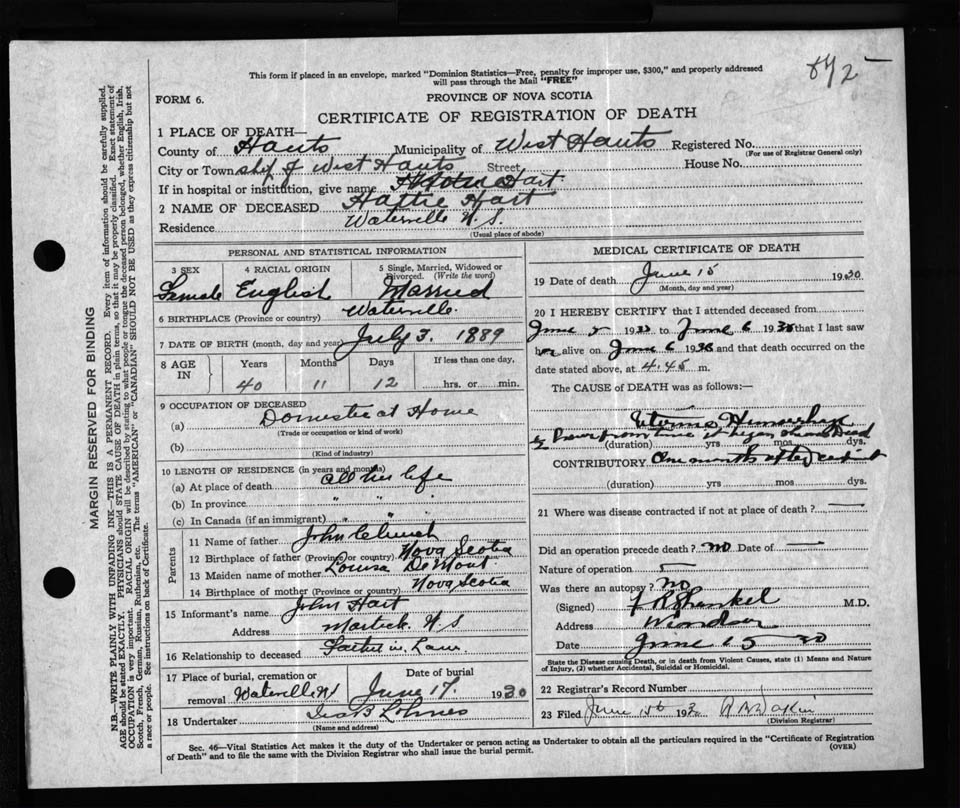 842
This form if placed in an envelope, marked "Dominion Statistics—Free, penalty for improper use, $300," and properly addressed
will pass through the Mail "FREE"
FORM 6.
PROVINCE OF NOVA SCOTIA
CERTIFICATE OF REGISTRATION OF DEATH
1 PLACE OF DEATH—
County of Hants Municipality of West Hants Registered No.
(For use of Registrar General only)
City or Town ship of West Hants Street House No.
If in hospital or institution, give name Hart
2 NAME OF DECEASED Hattie Hart
Residence Waterville N.S.
(Usual place of abode)
PERSONAL AND STATISTICAL INFORMATION
3 SEX 4 RACIAL ORIGIN 5 Single, Married, Widowed or
Divorced. (Write the word)
Female English Married
6 BIRTHPLACE (Province or country) Waterville.
7 DATE OF BIRTH (month, day and year) July 3. 1889
8 AGE IN Years Months Days If less than one day,
40 11 12 hrs. or min.
9 OCCUPATION OF DECEASED
(a) Domestic at Home
(Trade or occupation or kind of work)
(b)
(Kind of industry)
10 LENGTH OF RESIDENCE (in years and months)
(a) At place of death all her life
(b) In province " " "
(c) In Canada (if an immigrant) " " "
Parents
11 Name of father John Church
12 Birthplace of father (Province or country) Nova Scotia
13 Maiden name of mother Louisa DeMont
14 Birthplace of mother (Province or country) Nova Scotia
15 Informant's name John Hart
Address Martock N.S
16 Relationship to deceased Father in Law
17 Place of burial, cremation or removal Date of burial
Waterville NS June 17. 1930
18 Undertaker Lohnes
(Name and address)
MEDICAL CERTIFICATE OF DEATH
19 Date of death June 15 1930
(Month, day and year)
20 I HEREBY CERTIFY that I attended deceased from
June 2 19 to June 6 19 that I last saw
her alive on June 6 19 and that death occurred on the
date stated above, at 4.45 m.
The CAUSE of DEATH was as follows:—
Uterine Hemorrhage
(duration) yrs mos. dys.
CONTRIBUTORY One month after
(duration) yrs mos dys.
21 Where was disease contracted if not at place of death? —
Did an operation precede death? no Date of —
Nature of operation
Was there an autopsy? No
(Signed) Shankel M.D.
Address Windsor
Date June 15 30
State the Disease causing Death, or in death from Violent Causes, state (1) Means and Nature
of Injury, (2) whether Accidental, Suicidal or Homicidal.
22 Registrar's Record Number
23 Filed June 193
(Division Registrar)
Sec. 46—Vital Statistics Act makes it the duty of the Undertaker or person acting as Undertaker to obtain all the particulars required in the "Certificate of Registration
of Death" and to file the same with the Division Registrar who shall issue the burial permit.
(OVER)
MARGIN RESERVED FOR BINDING
N.B.—WRITE PLAINLY WITH UNFADING INK—THIS IS A PERMANENT RECORD. Every item of information should be carefully supplied.
AGE should be stated EXACTLY. PHYSICIANS should STATE CAUSE OF DEATH in plain terms, so that it may be properly classified. Exact statement of
OCCUPATION is very important. RACIAL ORIGIN will be described by stating to what people or tongue the deceased person belonged, whether English, Irish,
Scotch, French, German, Russian, Ruthenian, etc. The terms "AMERICAN" or "CANADIAN" SHOULD NOT BE USED as they express citizenship but not
a race or people. See instructions on back of Certificate.